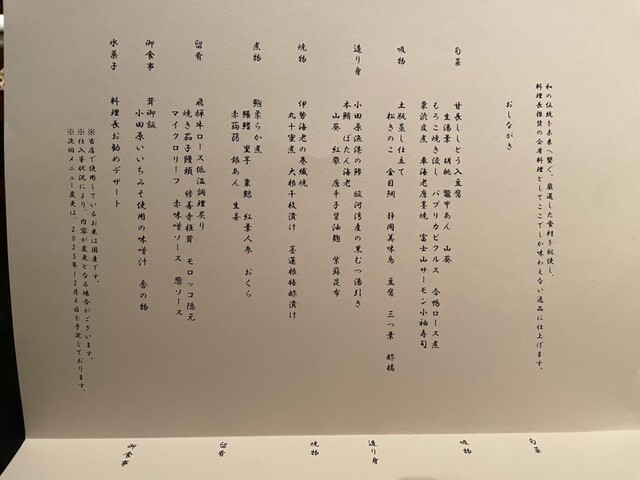 和の伝統を未来へ繋ぐ。厳選した食材を駆使し、
料理長推奨の会席料理としてここでしか味わえない逸品に仕上げます。
おしながき
旬菜
甘長ししとう入豆腐
生湯葉 胡桃 鼈甲あん 山葵
もろこ焼き浸し パプリカピクルス 合鴨ロース煮
栗渋皮煮 車海老唐墨焼 富士山サーモン小袖寿司
吸物
土瓶蒸し仕立て
松きのこ 金目鯛 静岡美味鳥 豆腐 三つ葉 酢橘
造り身
小田原漁港の鰺 駿河湾産の黒むつ湯引き
本鮪 ぼたん海老
山葵 紅蓼 唐辛子醤油麹 紫蘇昆布
焼物
伊勢海老の巻繊焼
丸十蜜煮 大根千枚漬け 茎蓮根梅酢漬け
煮物
鮑柔らか煮
鱚鱈 里芋 粟麩 紅葉人参 おくら
赤蒟蒻 銀あん 生姜
留肴
飛騨牛ロース低温調理炙り
焼き茄子饅頭 修善寺椎茸 モロッコ隠元
マイクロリーフ 赤味噌ソース 葱ソース
御食事
茸御飯
小田原いいちみそ使用の味噌汁 香の物
水菓子
料理長お勧めデザート
※当店で使用しているお米は国産です。
※仕入等状況により、内容が変更となる場合がございます。
※次回メニュー変更は、2025年12月4日を予定しております。
旬菜
吸物
造り身
焼物
留肴
御食事